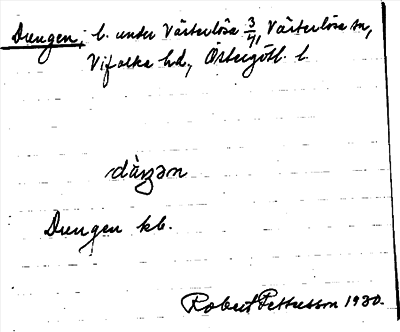 Dungen, l. under Västerlösa 3/4, Västerlösa sn,
Vifolka hd, Östergötl. l.
Dungen kb.
Robert Pettersson 1930.